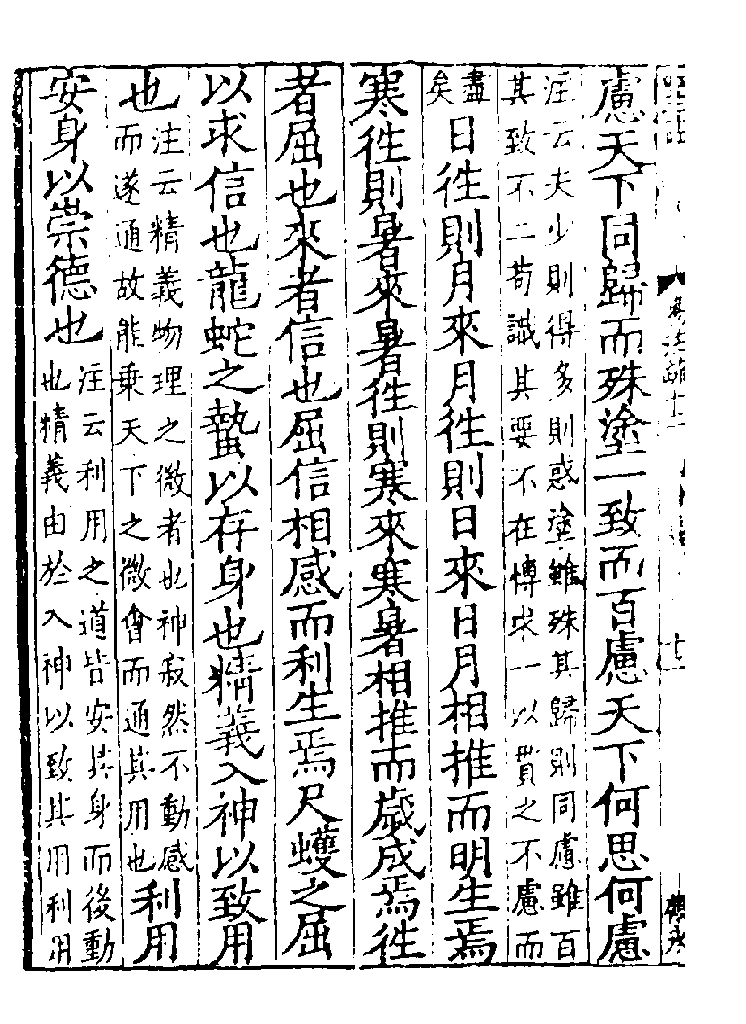 慮天下同歸而殊塗一致而百慮天下何思何慮
注云夫少則得多則惑塗雖殊其歸則同慮雖百
其致不二苟識其要不在慱求一以貫之不慮而
盡
矣
日徃則月來月徃則日來日月相推而明生焉
寒徃則暑來暑徃則寒來寒暑相推而歲成焉徃
者屈也來者信也屈信相感而利生焉尺蠖之屈
以求信也龍蛇之蟄以存身也精義入神以致用
也
注云精義物理之微者也神寂然不動感
而遂通故能乗天下之微會而通其用也
利用
安身以崇德也
注云利用之道皆安其身而後動
也精義由於入神以致其用利用